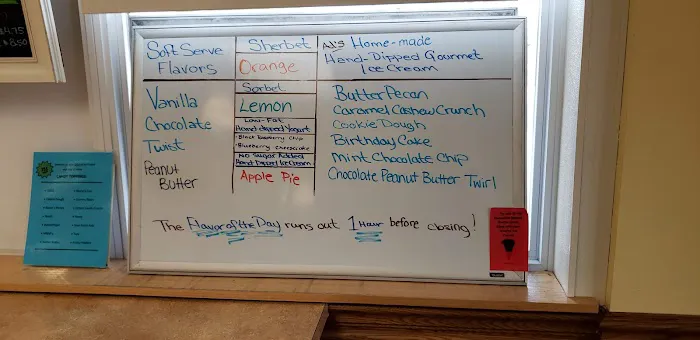 $4.75
$8.50
Soft Serve
Flavors
Vanilla
Chocolate
Twist
Peanut
Butter
Sherbet
Orange
Sorbet
Lemon
Low-Fat
Hand dipped Yogurt
·Black Raspberry Chip
·Blueberry Cheesecake
No Sugar Added
Hand Dipped Ice Cream
Apple Pie
AJ's Home-made
Hand-Dipped Gourmet
Ice Cream
Butter Pecan
Caramel Cashew Crunch
Cookie Dough
Birthday Cake
Mint Chocolate Chip
Chocolate Peanut Butter Twirl
The Flavor of the Day runs out 1 Hour before closing!